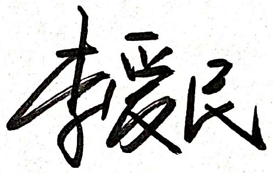 李爱民